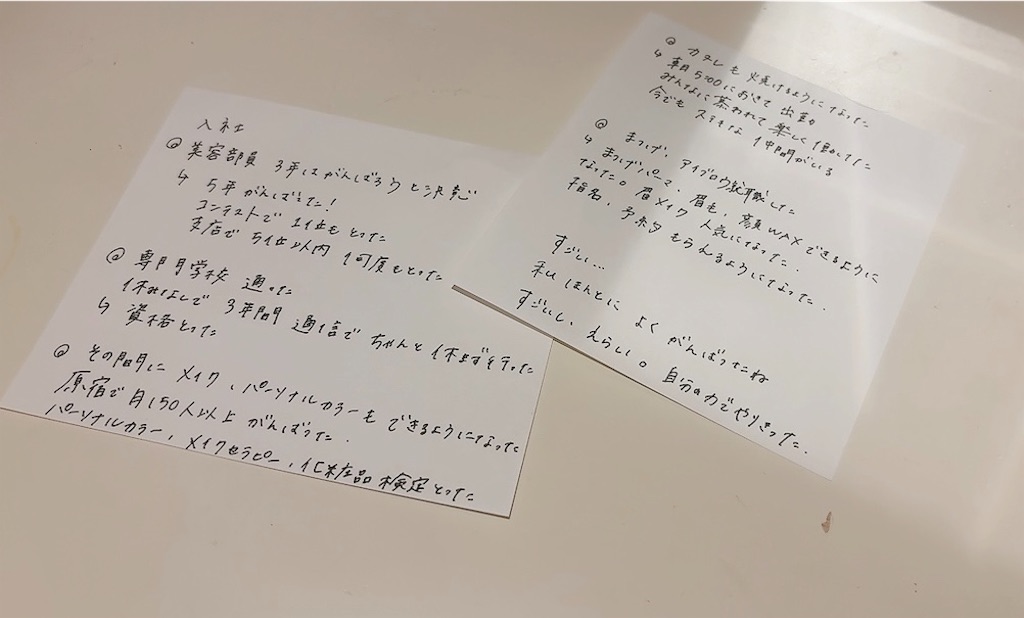 入社
@ 美容部員 3年はがんばろうと決意
↳ 5年がんばった!
コンテストで 1位もとった
支店で 5位以内 何度もとった
@ 専門学校 通った
休みなしで 3年間 通信で ちゃんと休まず行った
↳ 資格とった
@ その間に メイク、パーソナルカラーも できるようになった
原宿で月150人以上 がんばった.
パーソナルカラー, メイクセラピー, 化粧品検定とった
@ カヌレも 焼けるようになった
↳ 朝5:00におきて 出勤
みんなに慕われて 楽しく働いてた
今でも ステキな 仲間がいる
@ まつげ, アイブロウ就職した
↳ まつげパーマ, 眉毛, 顔WAXできるように
なった。眉メイク 人気になった.
指名, 予約 もらえるようになった.
すごい...
私 ほんとに よく がんばったね
すごいし, えらい。自分の力でやりきった.